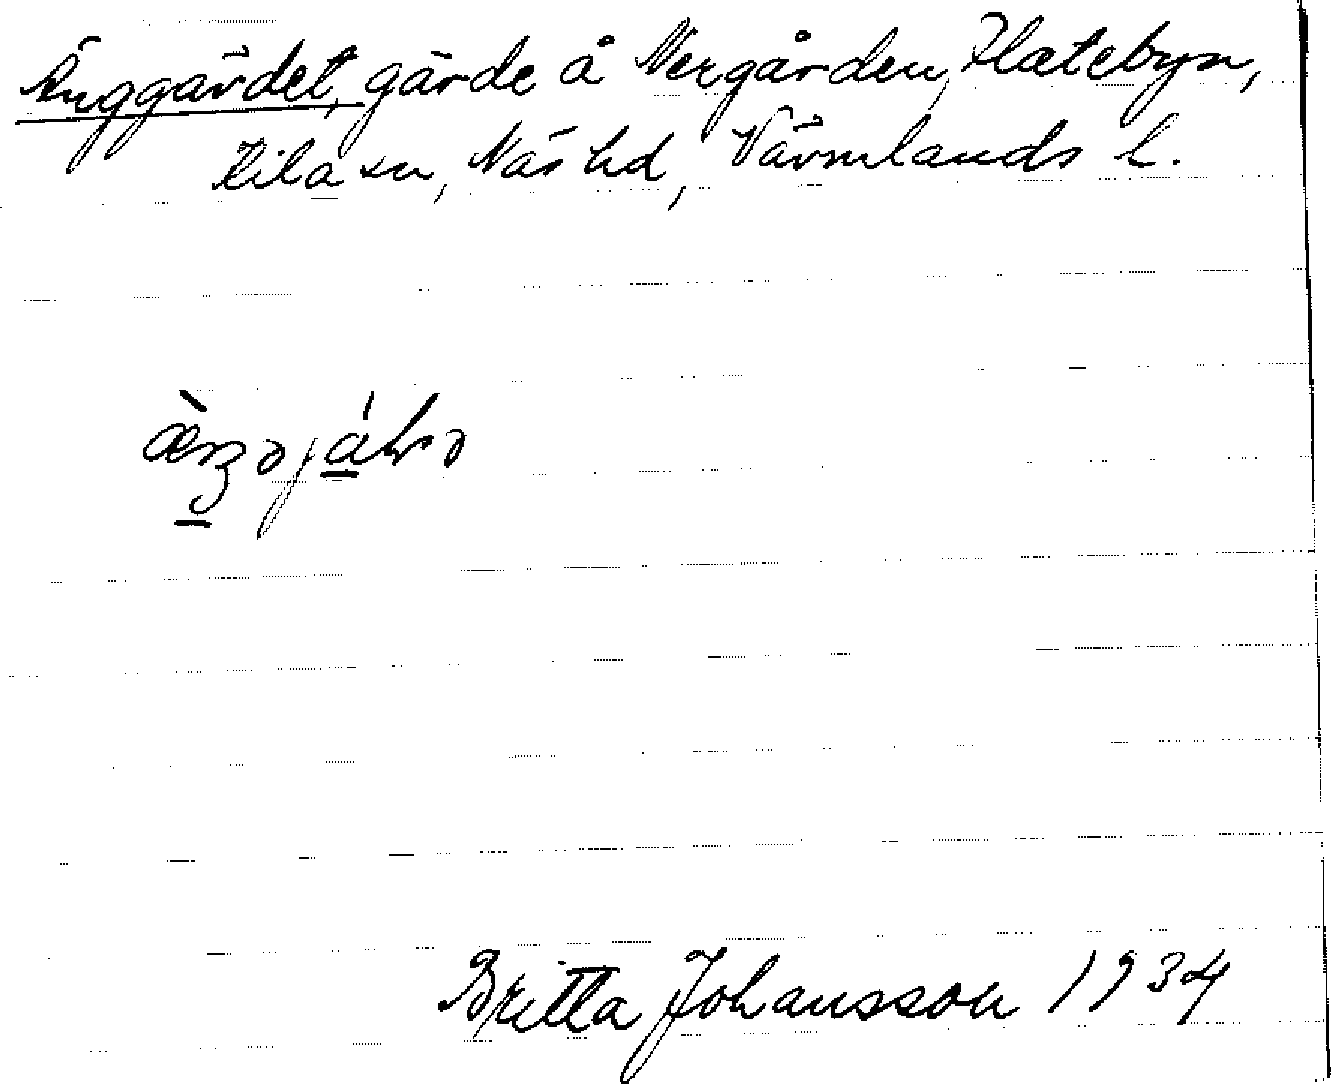 Änggärdet, gärde å Nergården, Flatebyn,
Kila sn, Näs hd, Värmlands l.
Britta Johansson 1934